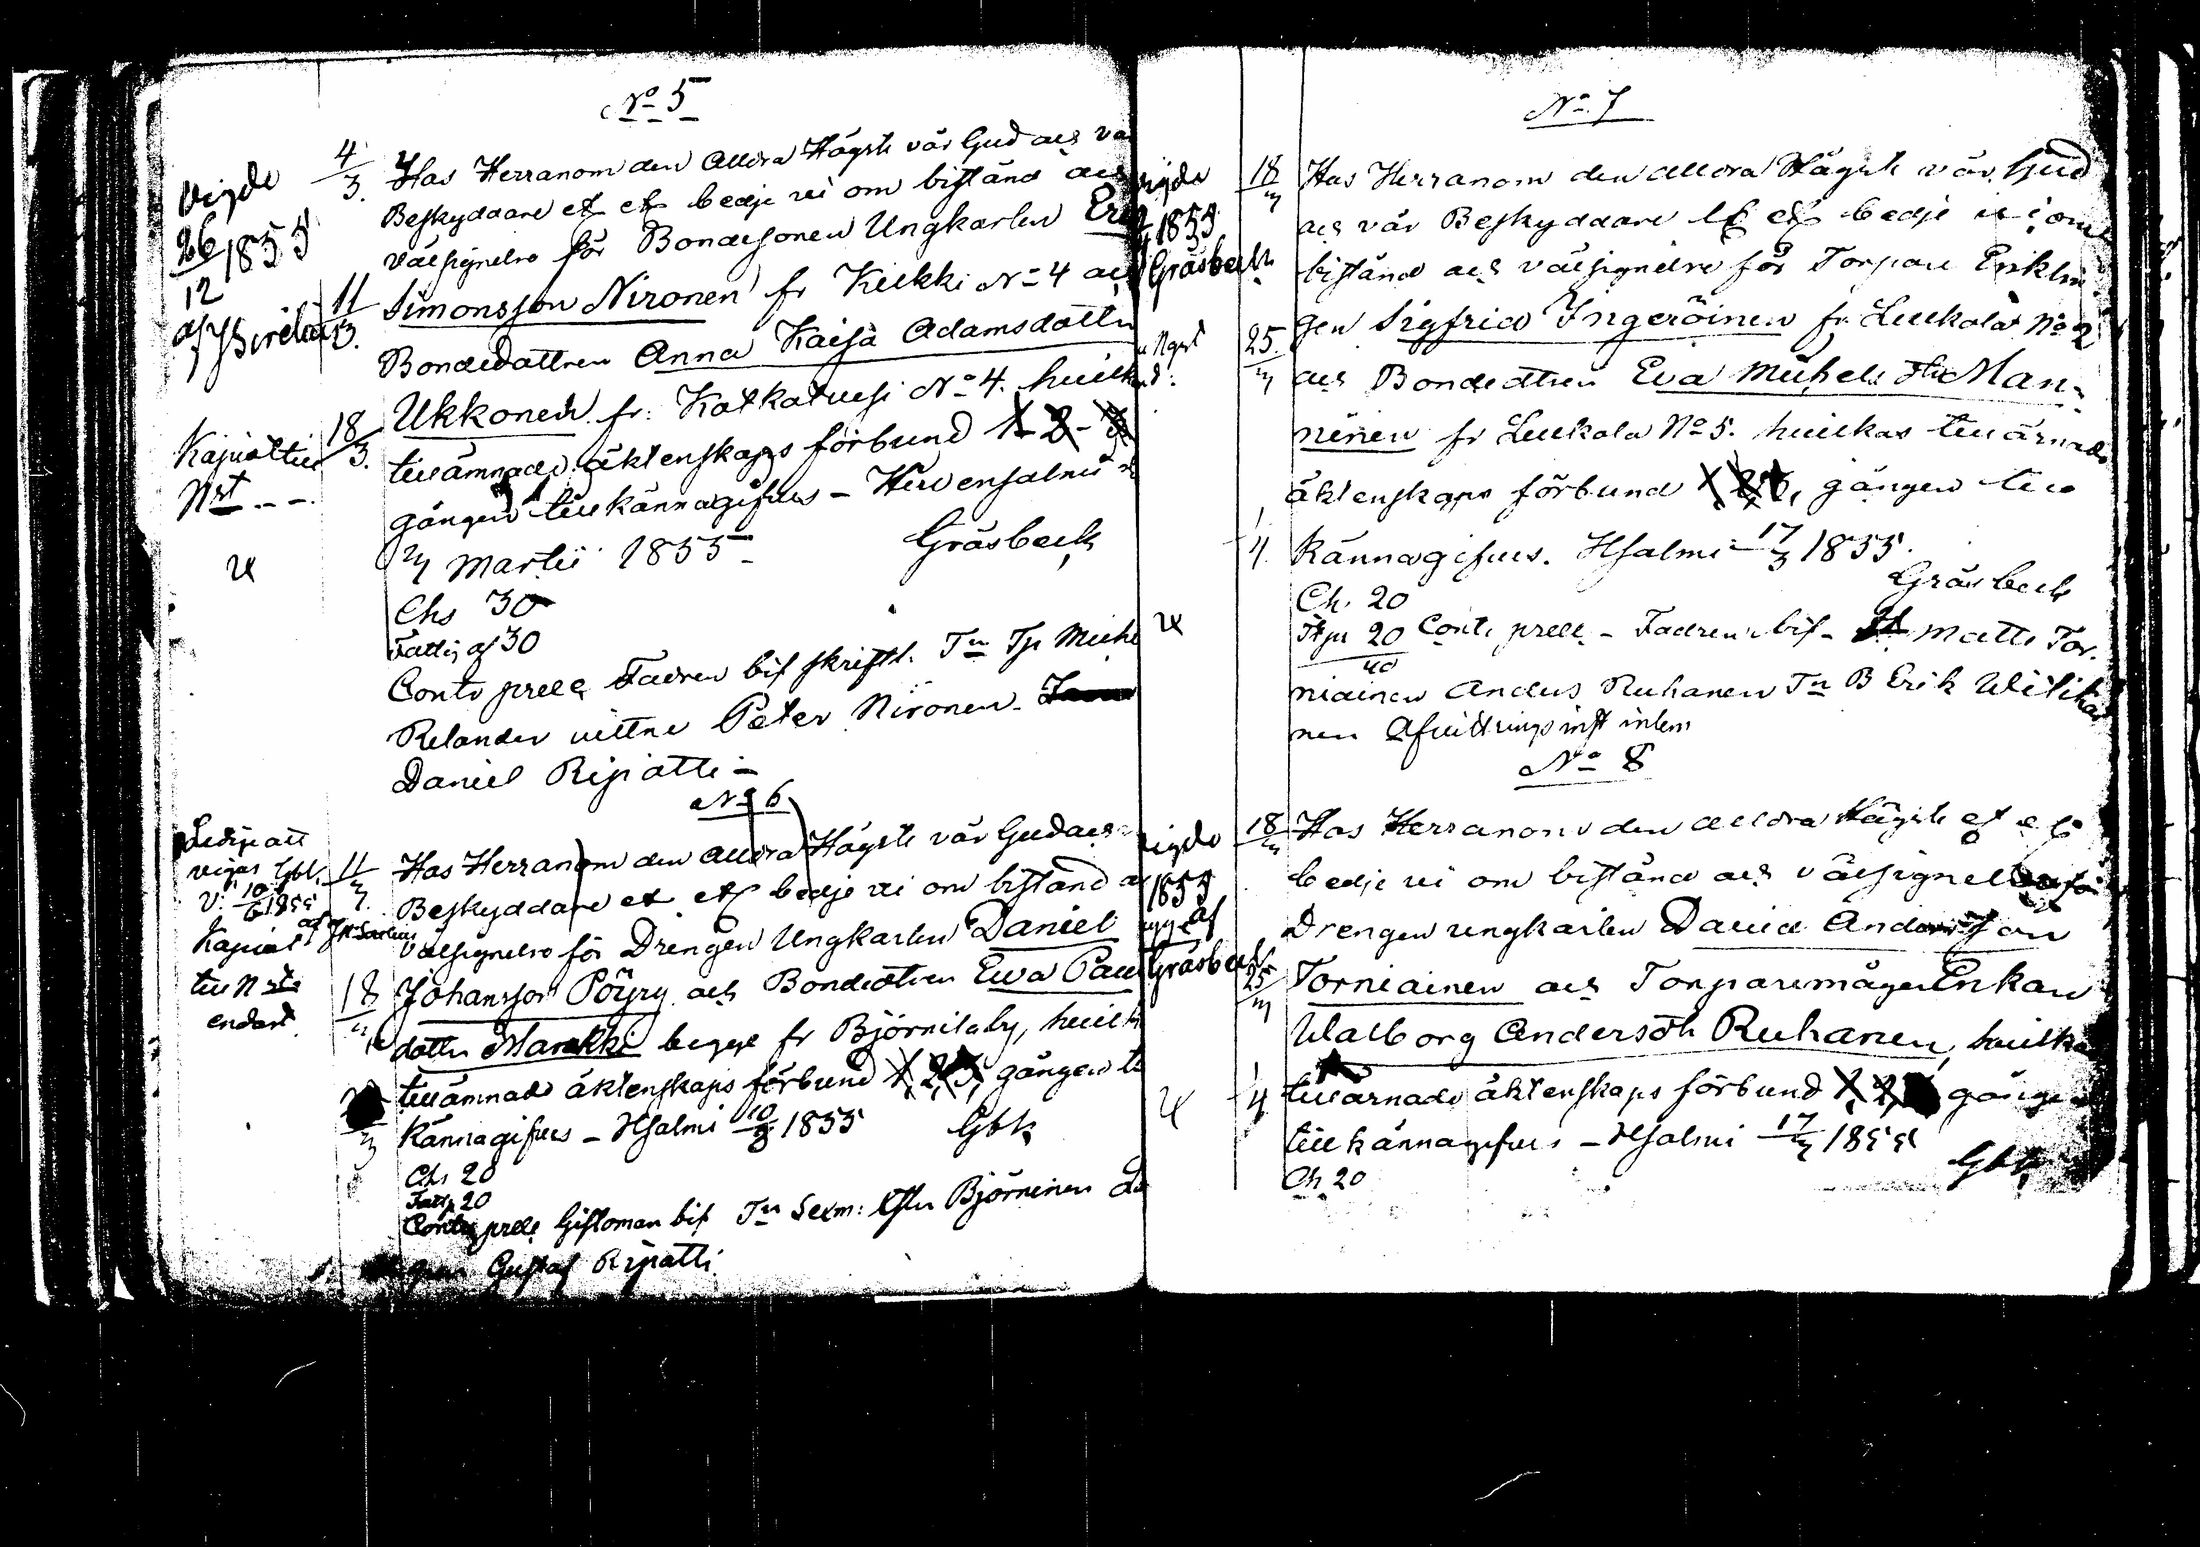 No 5
Vigde
26/12 1855
af
4/3. Hos Herranom den Allra Högste vår Gud och vå
Beskyddare etc etc bedje vi om bistånd och
välsignelse för Bondesonen Ungkarlen
11/3. Simonsson Nironen fr Kiukki No 4 och
Bondedottren Anna Kaisa Adamsdotter
18/3. Ukkonen fr: Katkatussi No 4. hvilk
tillämnade äktenskaps förbund 1 2 3
gången tillkännagifves –
Martii 1855 – Gräsbeck
Chs 30
Fattig af 30
Contr prell Fadren bif skriftl. Tn Tjs Miche
Relander vittne Peter Nironen.
Daniel Ripatti –
Kapital till
Nrst - -
No 6
Ledige att
vigas Gbk.
v. 10/6 1855
af
Kapital
till Nrst
endast
11/3. Hos Herranom den Allra Högste vår Gud och
Beskyddare etc etc bedje vi om bistånd oc
välsignelse för Drengen Ungkarlen Daniel
18/3 Johansson Pöyry och Bondedotren Eva Paul
dotter Marakki begge fr Björnilaby, hvilk
tillämnade äktenskaps förbund 1, 2, 3, gången ti
kännagifves – Hsalmi 10/3 1855 Gbk
Chs 20
Fattig 20
Contr prell Giftoman bif Tn Sexm: Björninen
Gustaf Ripatti
No 7
vigde
1855
Gräsbeck
18/3 Hos Herranom den Allra Högste vår Gud
och vår Beskyddare etc etc bedje vi om
bistånd och välsignelse för Torpare Enklin
25/3 gen Sigfrid Ingeröinen fr Leukola No 2
och Bondedtren Eva Michels dtr Man-
ninen fr Leukola No 5. hvilkas tillärnade
äktenskaps förbund 1, 2, 3, gången till
1/4 kännagifves. Hsalmi 17/3 1855.
Gräsbeck
Ch. 20
20 Contr prell – Fadren bif – Matts Tor-
40
niainen Anders Ruhanen Tn B Erik
nen Afvittrings inst inlem
No 8
vigde
1855
af
Gräsbeck
18/3 Hos Herranom den Allra Högste etc etc
bedje vi om bistånd och välsignelse för
Drengen ungkarlen David Andersson
25/3 Torniainen och Torparemågen Enkan
Walborg Andersdtr Ruhanen, hvilka
1/4 tillärnade äktenskaps förbund 1, 2, gånge
tillkännagifves – Hsalmi 17/3 1855
Gbk
Ch 20